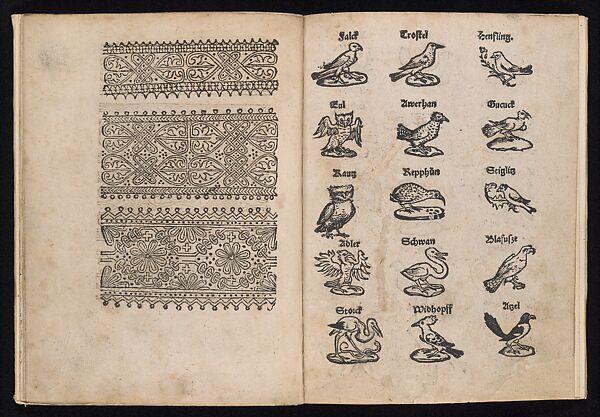 Falck Trostel Henfling.
Eul Awerhan Gucuck
Kautz Repphün Stiglitz
Adler Schwan Blafusze
Storck Widhopff Atzel